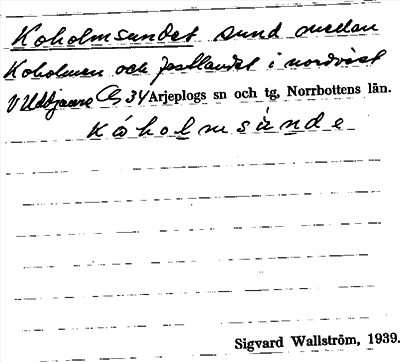 Koholmsundet sund mellan
Koholmen och fastlandet i nordväst
V Uddjaure Gs 34 Arjeplogs sn och tg, Norrbottens län.
kóholmsùnde
Sigvard Wallström, 1939.